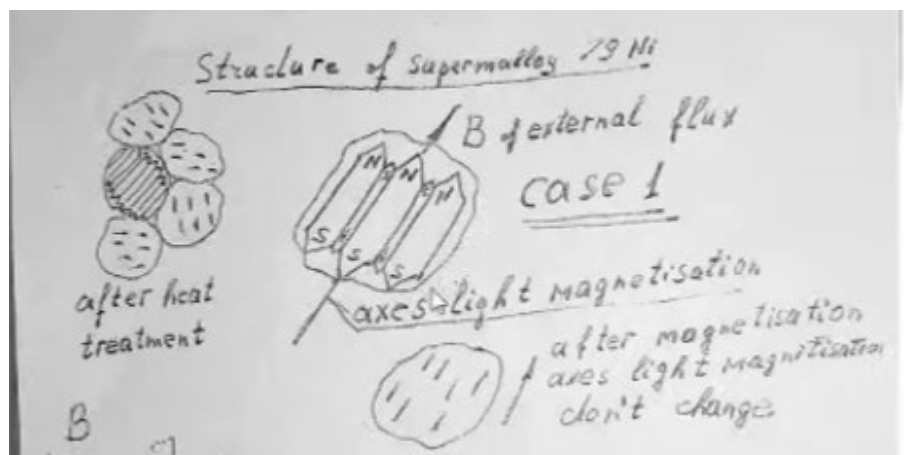 Structure of supermalloy 79 Ni
B of external flux
case 1
N N N
S S S
after heat
treatment
axes light magnetisation
after magnetisation
axes light magnitisation
don't change.
B